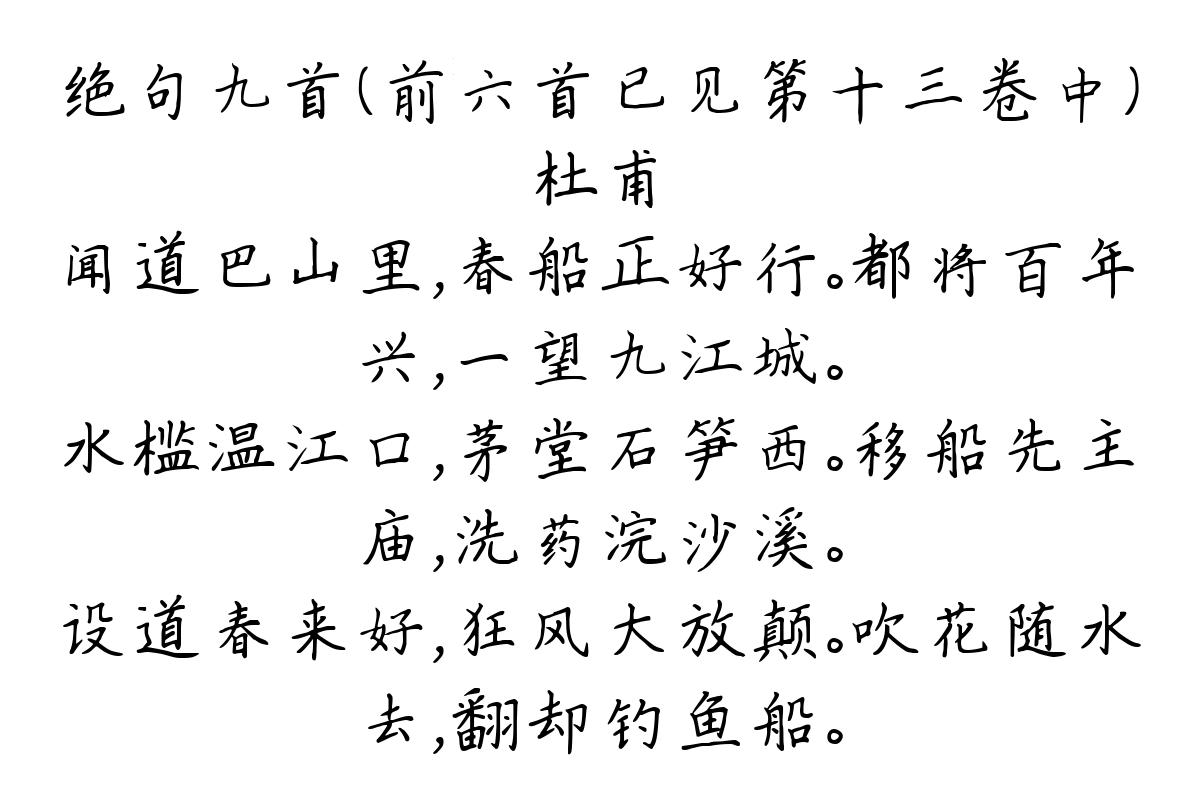 绝句九首(前六首已见第十三卷中)
杜甫
闻道巴山里,春船正好行。都将百年
兴,一望九江城。
水槛温江口,茅堂石笋西。移船先主
庙,洗药浣沙溪。
设道春来好,狂风大放颠。吹花随水
去,翻却钓鱼船。